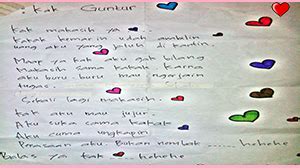 : Kak Guntur
Kak makasih ya
Kak kemarin udah ambilin
uang aku yang jatuh di kantin
Maaf ya kak aku gak bilang
Makasih sama kakak karna
aku buru-buru mau ngerjain
tugas.
Sekali lagi makasih.
Kak aku mau jujur.
Aku sukan sama kakak
Aku cuma ungkapin
Perasaan aku. Bukan nembak ... hehehe
Balas ya kak ... hehehe